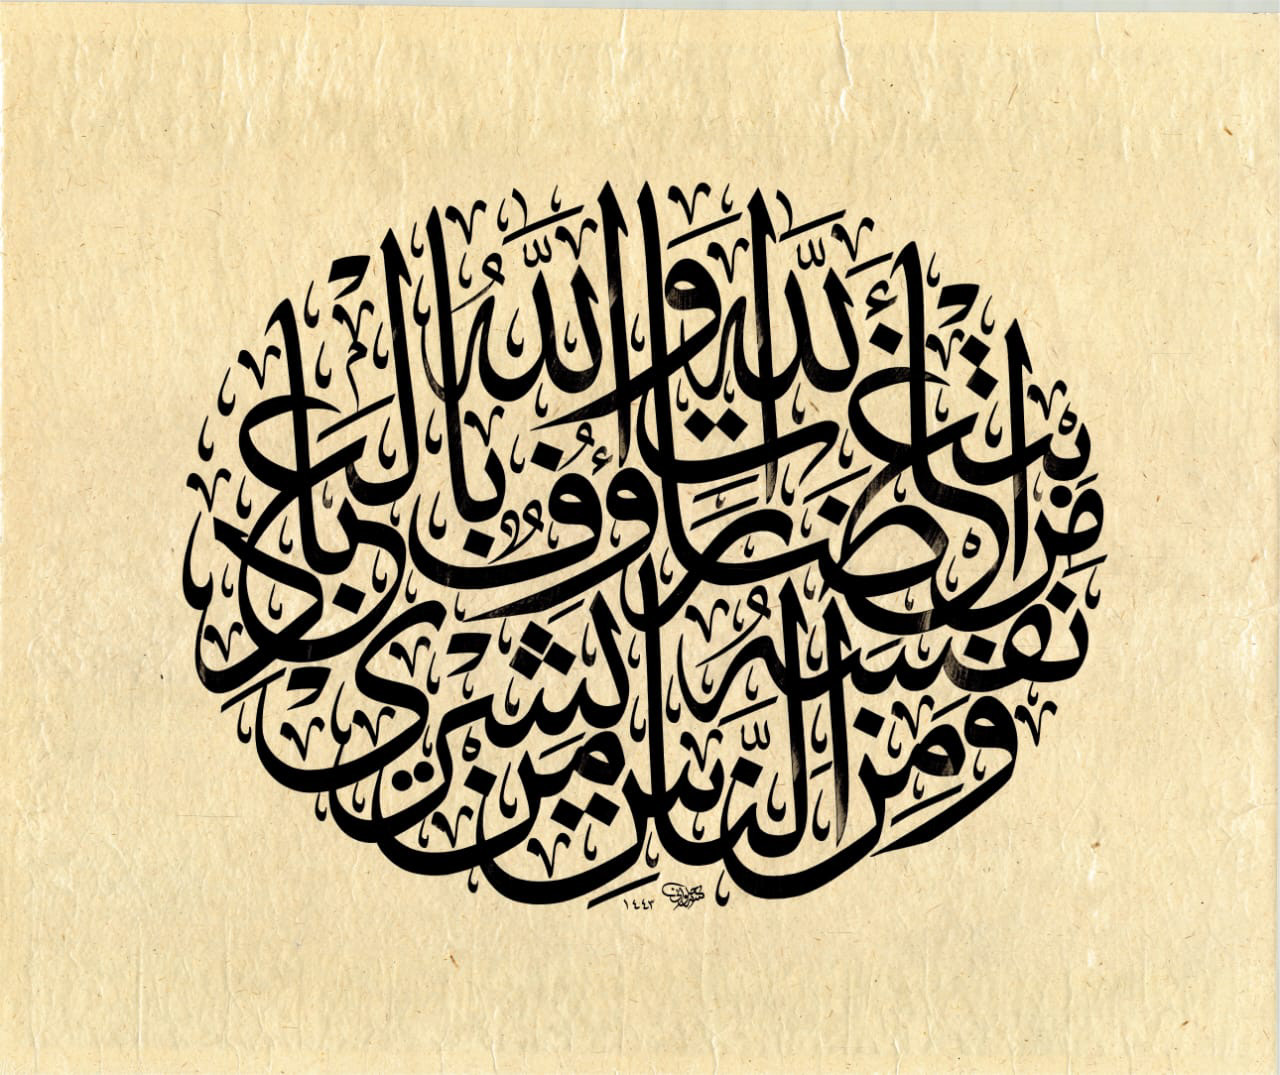 وَمِنَ النَّاسِ مَنْ يَشْرِي
نَفْسَهُ ابْتِغَاءَ مَرْضَاتِ اللَّهِ وَاللَّهُ رَءُوفٌ بِالْعِبَادِ
١٤٤٣